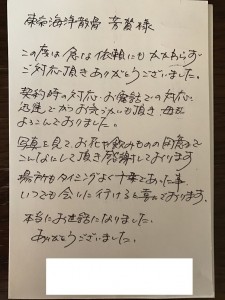 東海海洋散骨 芳賀様
この度は急な依頼にもかかわらず
ご対応頂きありがとうございました。
契約時の対応・お電話での対応
迅速でかつお気づかいも頂き 母も
よろこんでおりました。
写真を見て、お花や飲みもの
こんなにして頂き感謝しております
場所もタイミングよく千葉であった事、
いつでも会いに行けると喜んでおります。
本当にお世話になりました。
ありがとうございました。